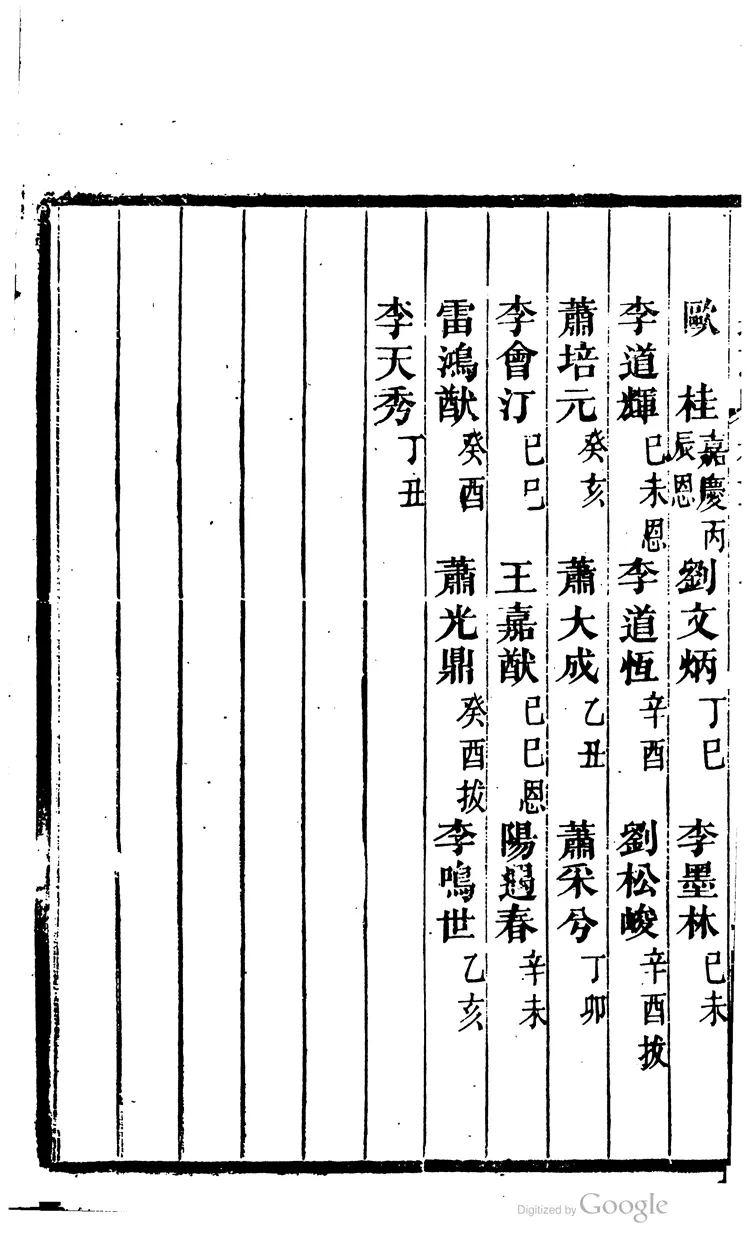 歐　桂嘉慶丙辰恩　劉文炳丁巳　李墨林己未
李道輝己未恩　李道恆辛酉　劉松峻辛酉拔
蕭培元癸亥　蕭大成乙丑　蕭采兮丁卯
李會汀己巳　王嘉猷己巳恩　陽遇春辛未
雷鴻猷癸酉　蕭光鼎癸酉拔　李鳴世乙亥
李天秀丁丑
Digitized by Google